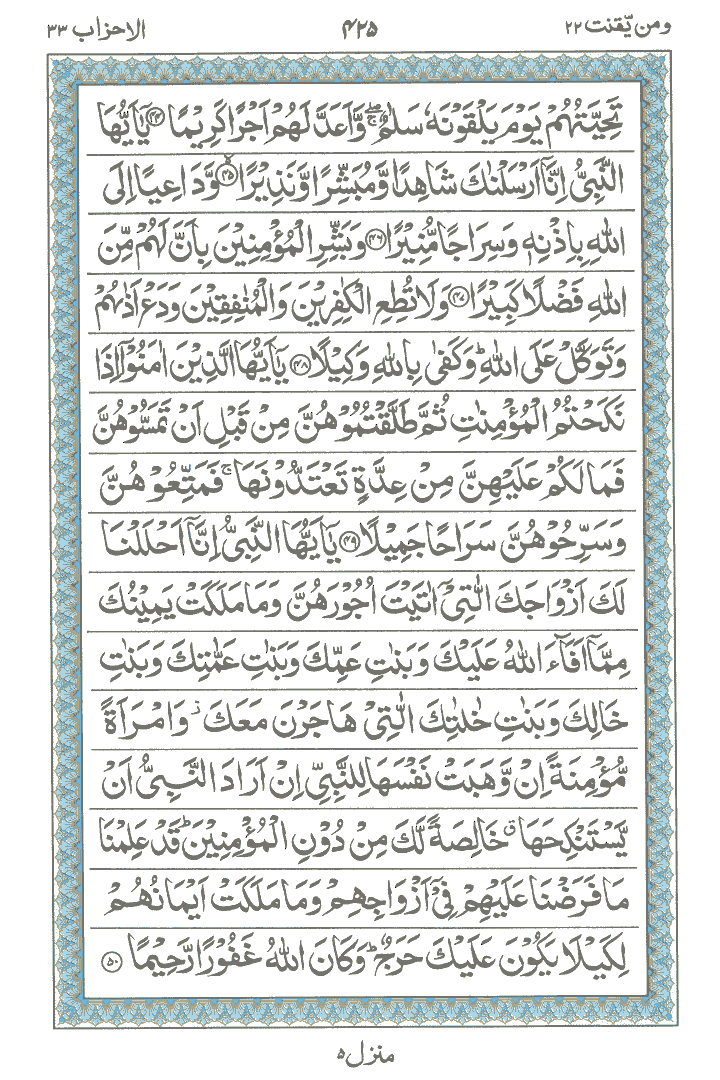 ومن یّقنت ۲۲ ۴۲۵ الاحزاب ۳۳
تَحِيَّتُهُمْ يَوْمَ يَلْقَوْنَهٗ سَلٰمٌ ۖۚ وَّاَعَدَّ لَهُمْ اَجْرًا كَرِيْمًا ﴿۴۴﴾ يٰۤاَيُّهَا
النَّبِيُّ اِنَّاۤ اَرْسَلْنٰكَ شَاهِدًا وَّمُبَشِّرًا وَّنَذِيْرًا ﴿۴۵﴾ وَّدَاعِيًا اِلَى
اللّٰهِ بِاِذْنِهٖ وَسِرَاجًا مُّنِيْرًا ﴿۴۶﴾ وَبَشِّرِ الْمُؤْمِنِيْنَ بِاَنَّ لَهُمْ مِّنَ
اللّٰهِ فَضْلًا كَبِيْرًا ﴿۴۷﴾ وَلَا تُطِعِ الْكٰفِرِيْنَ وَالْمُنٰفِقِيْنَ وَدَعْ اَذٰىهُمْ
وَتَوَكَّلْ عَلَى اللّٰهِ ؕ وَكَفٰى بِاللّٰهِ وَكِيْلًا ﴿۴۸﴾ يٰۤاَيُّهَا الَّذِيْنَ اٰمَنُوْۤا اِذَا
نَكَحْتُمُ الْمُؤْمِنٰتِ ثُمَّ طَلَّقْتُمُوْهُنَّ مِنْ قَبْلِ اَنْ تَمَسُّوْهُنَّ
فَمَا لَكُمْ عَلَيْهِنَّ مِنْ عِدَّةٍ تَعْتَدُّوْنَهَا ۚ فَمَتِّعُوْهُنَّ
وَسَرِّحُوْهُنَّ سَرَاحًا جَمِيْلًا ﴿۴۹﴾ يٰۤاَيُّهَا النَّبِيُّ اِنَّاۤ اَحْلَلْنَا
لَكَ اَزْوَاجَكَ الّٰتِيْۤ اٰتَيْتَ اُجُوْرَهُنَّ وَمَا مَلَكَتْ يَمِيْنُكَ
مِمَّاۤ اَفَآءَ اللّٰهُ عَلَيْكَ وَبَنٰتِ عَمِّكَ وَبَنٰتِ عَمّٰتِكَ وَبَنٰتِ
خَالِكَ وَبَنٰتِ خٰلٰتِكَ الّٰتِيْ هَاجَرْنَ مَعَكَ ؗ وَامْرَاَةً
مُّؤْمِنَةً اِنْ وَّهَبَتْ نَفْسَهَا لِلنَّبِيِّ اِنْ اَرَادَ النَّبِيُّ اَنْ
يَّسْتَنْكِحَهَا ۗ خَالِصَةً لَّكَ مِنْ دُوْنِ الْمُؤْمِنِيْنَ ؕ قَدْ عَلِمْنَا
مَا فَرَضْنَا عَلَيْهِمْ فِيْۤ اَزْوَاجِهِمْ وَمَا مَلَكَتْ اَيْمَانُهُمْ
لِكَيْلَا يَكُوْنَ عَلَيْكَ حَرَجٌ ؕ وَكَانَ اللّٰهُ غَفُوْرًا رَّحِيْمًا ﴿۵۰﴾
منزل ۵